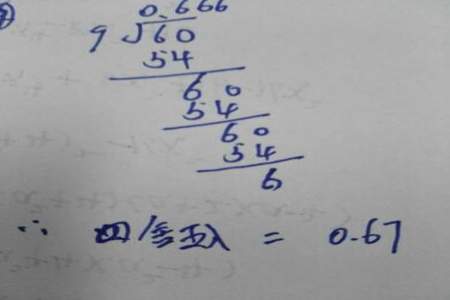 0.666
9 √60
54
60
54
60
54
6
∴ 四舍五入 = 0.67